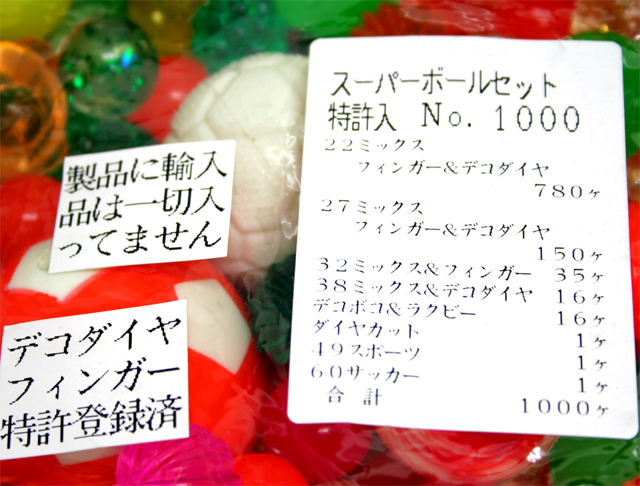 スーパーボールセット
特許入 No. 1000
22ミックス
フィンガー&デコダイヤ
780ヶ
27ミックス
フィンガー&デコダイヤ
150ヶ
32ミックス&フィンガー 35ヶ
38ミックス&デコダイヤ 16ヶ
デコボコ&ラクビー 16ヶ
ダイヤカット 1ヶ
49スポーツ 1ヶ
60サッカー 1ヶ
合計 1000ヶ
製品に輸入
品は一切入
ってません
デコダイヤ
フィンガー
特許登録済